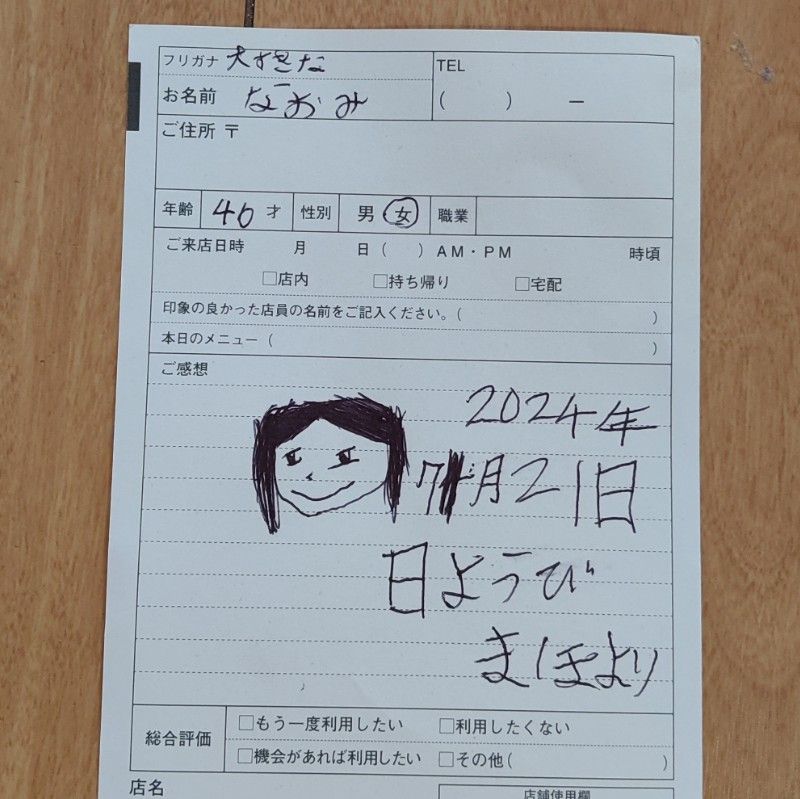 フリガナ 大すきな
TEL
お名前 なおみ
( ) ー
ご住所 〒
年齢 40 才 性別 男 女 職業
ご来店日時 月 日 ( ) AM・PM 時頃
□店内 □持ち帰り □宅配
印象の良かった店員の名前をご記入ください。( )
本日のメニュー ( )
ご感想
2024年
7月21日
日ようび
まほより
総合評価
□もう一度利用したい □利用したくない
□機会があれば利用したい □その他( )
店名
店舗使用欄